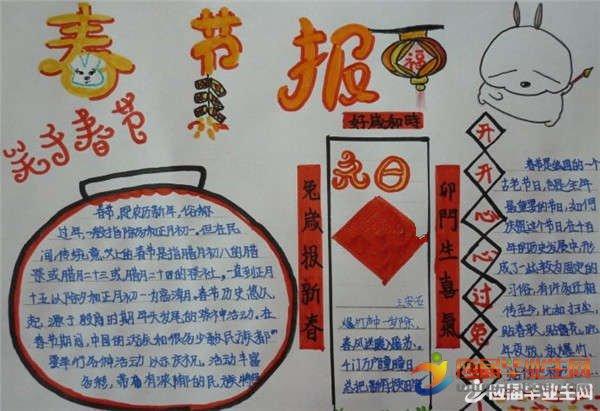 春节报
福
关于春节
好歲和時
春节,是农历新年,俗称
过年,一般指除夕和正月初一。但在民
间,传统意义上的春节是指腊月初八的腊
祭或腊月二十三或腊月二十四的祭灶,一直到正月
十五,以除夕和正月初一为高潮。春节历史悠久
起源于殷商时期年头岁尾的祭神活动。在
春节期间,中国的汉族和很多少数民族都
要举行各种活动以示庆祝。活动丰富
多彩,带有浓郁的民族特
兔歲报新春
元日
王安石
爆竹声中一岁除,
春风送暖入屠苏。
千门万户曈曈日
总把新桃换旧符
卯門生喜氣
开开心心过兔
春节是我国的一个
古老节日,也是全年
最重要的节日,如何
庆贺这个节日在千百
年的历史发展中,形
成了一些较为固定的
习俗,有许多还相
传至今。如扫尘,
贴春联,贴窗花,吃
年夜饭,放爆竹,
应届毕业生网